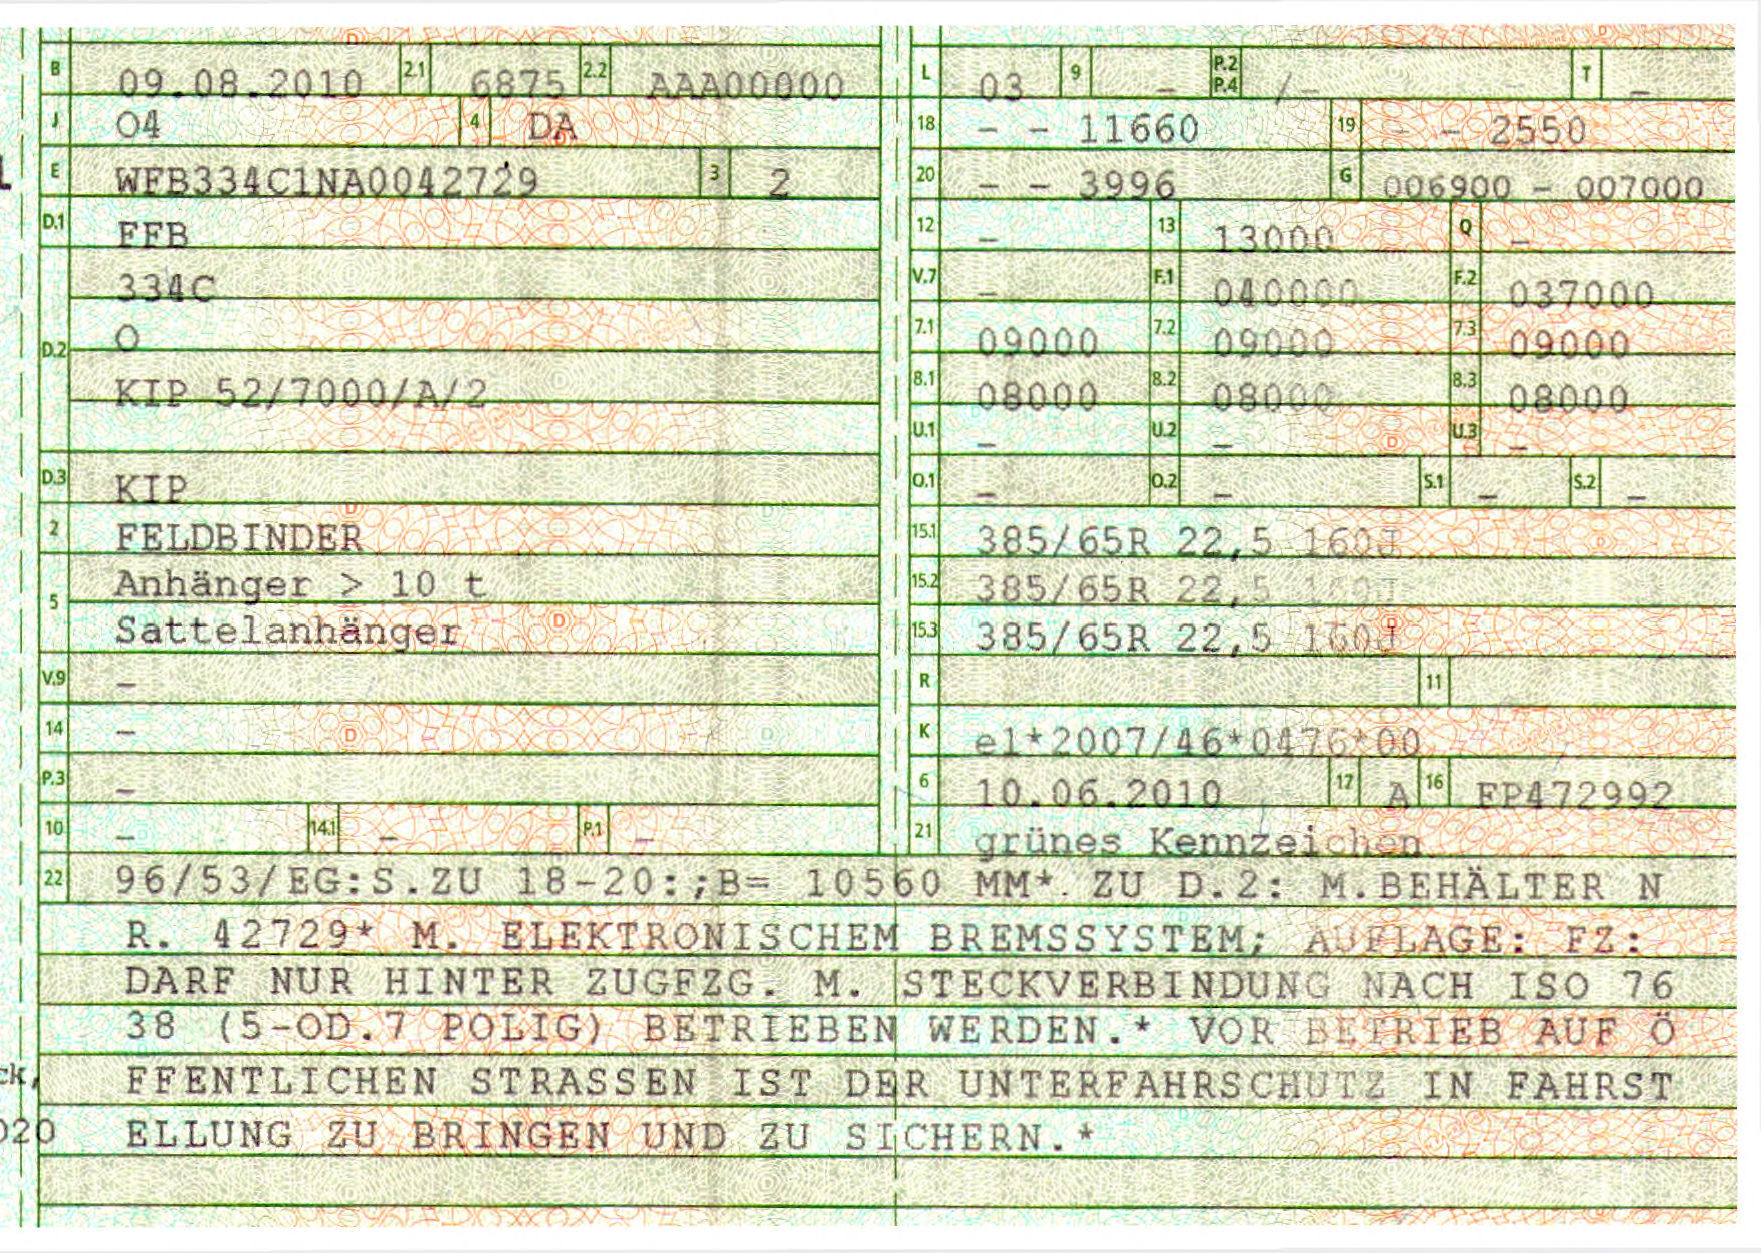 B 09.08.2010 2.1 6875 2.2 AAA00000
J O4 4 DA
E WFB334C1NA0042729 3 2
D.1 FFB
334C
D.2 O
KIP 52/7000/A/2
D.3 KIP
2 FELDBINDER
5 Anhänger > 10 t
Sattelanhänger
V.9 –
14 –
P.3 –
10 – 14.1 – P.1 –
L 03 9 – P.2 P.4 /– T –
18 – – 11660 19 – – 2550
20 – – 3996 G 006900 – 007000
12 – 13 13000 Q –
V.7 – F.1 040000 F.2 037000
7.1 09000 7.2 09000 7.3 09000
8.1 08000 8.2 08000 8.3 08000
U.1 – U.2 – U.3 –
O.1 – O.2 – S.1 – S.2 –
15.1 385/65R 22,5 160J
15.2 385/65R 22,5 160J
15.3 385/65R 22,5 160J
R 11
K e1*2007/46*0476*00
6 10.06.2010 17 A 16 FP472992
21 grünes Kennzeichen
22 96/53/EG:S.ZU 18-20:;B= 10560 MM*. ZU D.2: M.BEHÄLTER N
R. 42729* M. ELEKTRONISCHEM BREMSSYSTEM; AUFLAGE: FZ:
DARF NUR HINTER ZUGFZG. M. STECKVERBINDUNG NACH ISO 76
38 (5-OD.7 POLIG) BETRIEBEN WERDEN.* VOR BETRIEB AUF Ö
ck, FFENTLICHEN STRASSEN IST DER UNTERFAHRSCHUTZ IN FAHRST
020 ELLUNG ZU BRINGEN UND ZU SICHERN.*